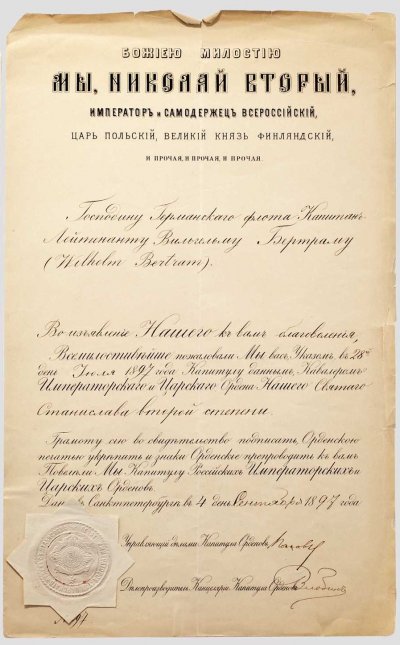 БОЖІЕЮ МИЛОСТІЮ
МЫ, НИКОЛАЙ ВТОРЫЙ,
ИМПЕРАТОРЪ и САМОДЕРЖЕЦЪ ВСЕРОССІЙСКІЙ,
ЦАРЬ ПОЛЬСКІЙ, ВЕЛИКІЙ КНЯЗЬ ФИНЛЯНДСКІЙ,
И ПРОЧАЯ, И ПРОЧАЯ, И ПРОЧАЯ.
Господину Германскаго флота Капитанъ
Лейтинанту Вильгельму Бертраму
(Wilhelm Bertram).
Во изъявленіе Нашего къ вамъ благоволенія,
Всемилостивѣйше пожаловали Мы васъ, Указомъ, въ 28й
день Іюля 1897 года Капитулу даннымъ, Кавалеромъ
Императорскаго и Царскаго Ордена Нашего Святаго
Станислава второй степени.
Грамоту сію во свидѣтельство подписать, Орденскою
печатью укрѣпить и знаки Орденскіе препроводить къ вамъ
Повелѣли Мы Капитулу Россійскихъ Императорскихъ и
Царскихъ Орденовъ.
Дана въ Санктпетербургѣ въ 4 день Сентября 1897 года
Управляющій дѣлами Капитула Орденовъ,
Дѣлопроизводитель Канцеляріи Капитула Орденовъ